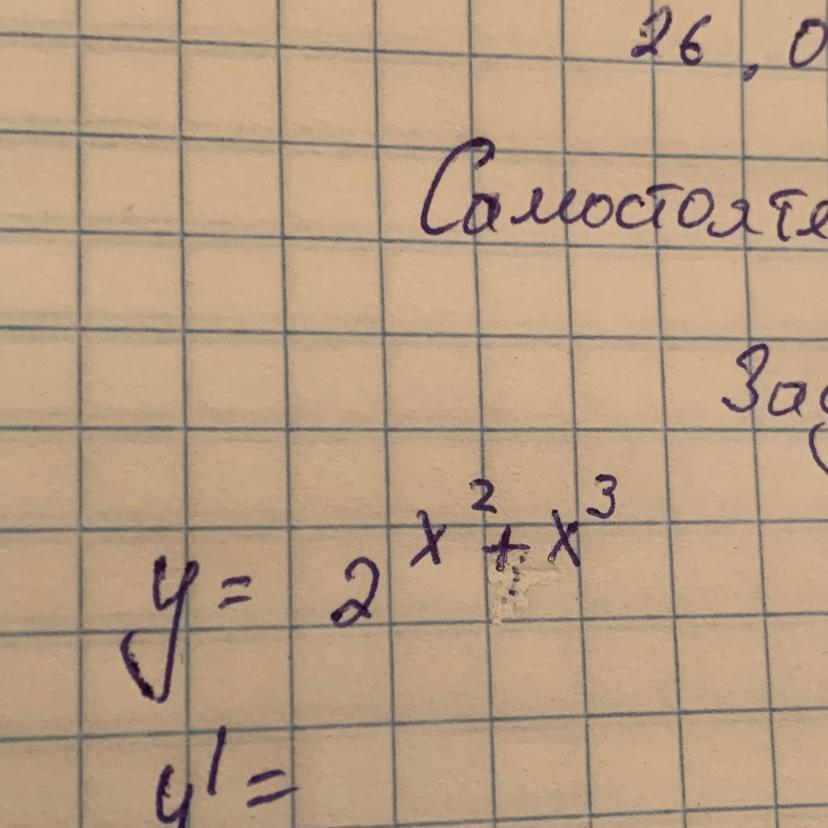 26.0
Самостояте
За
y = 2^{x^2 + x^3}
y' =